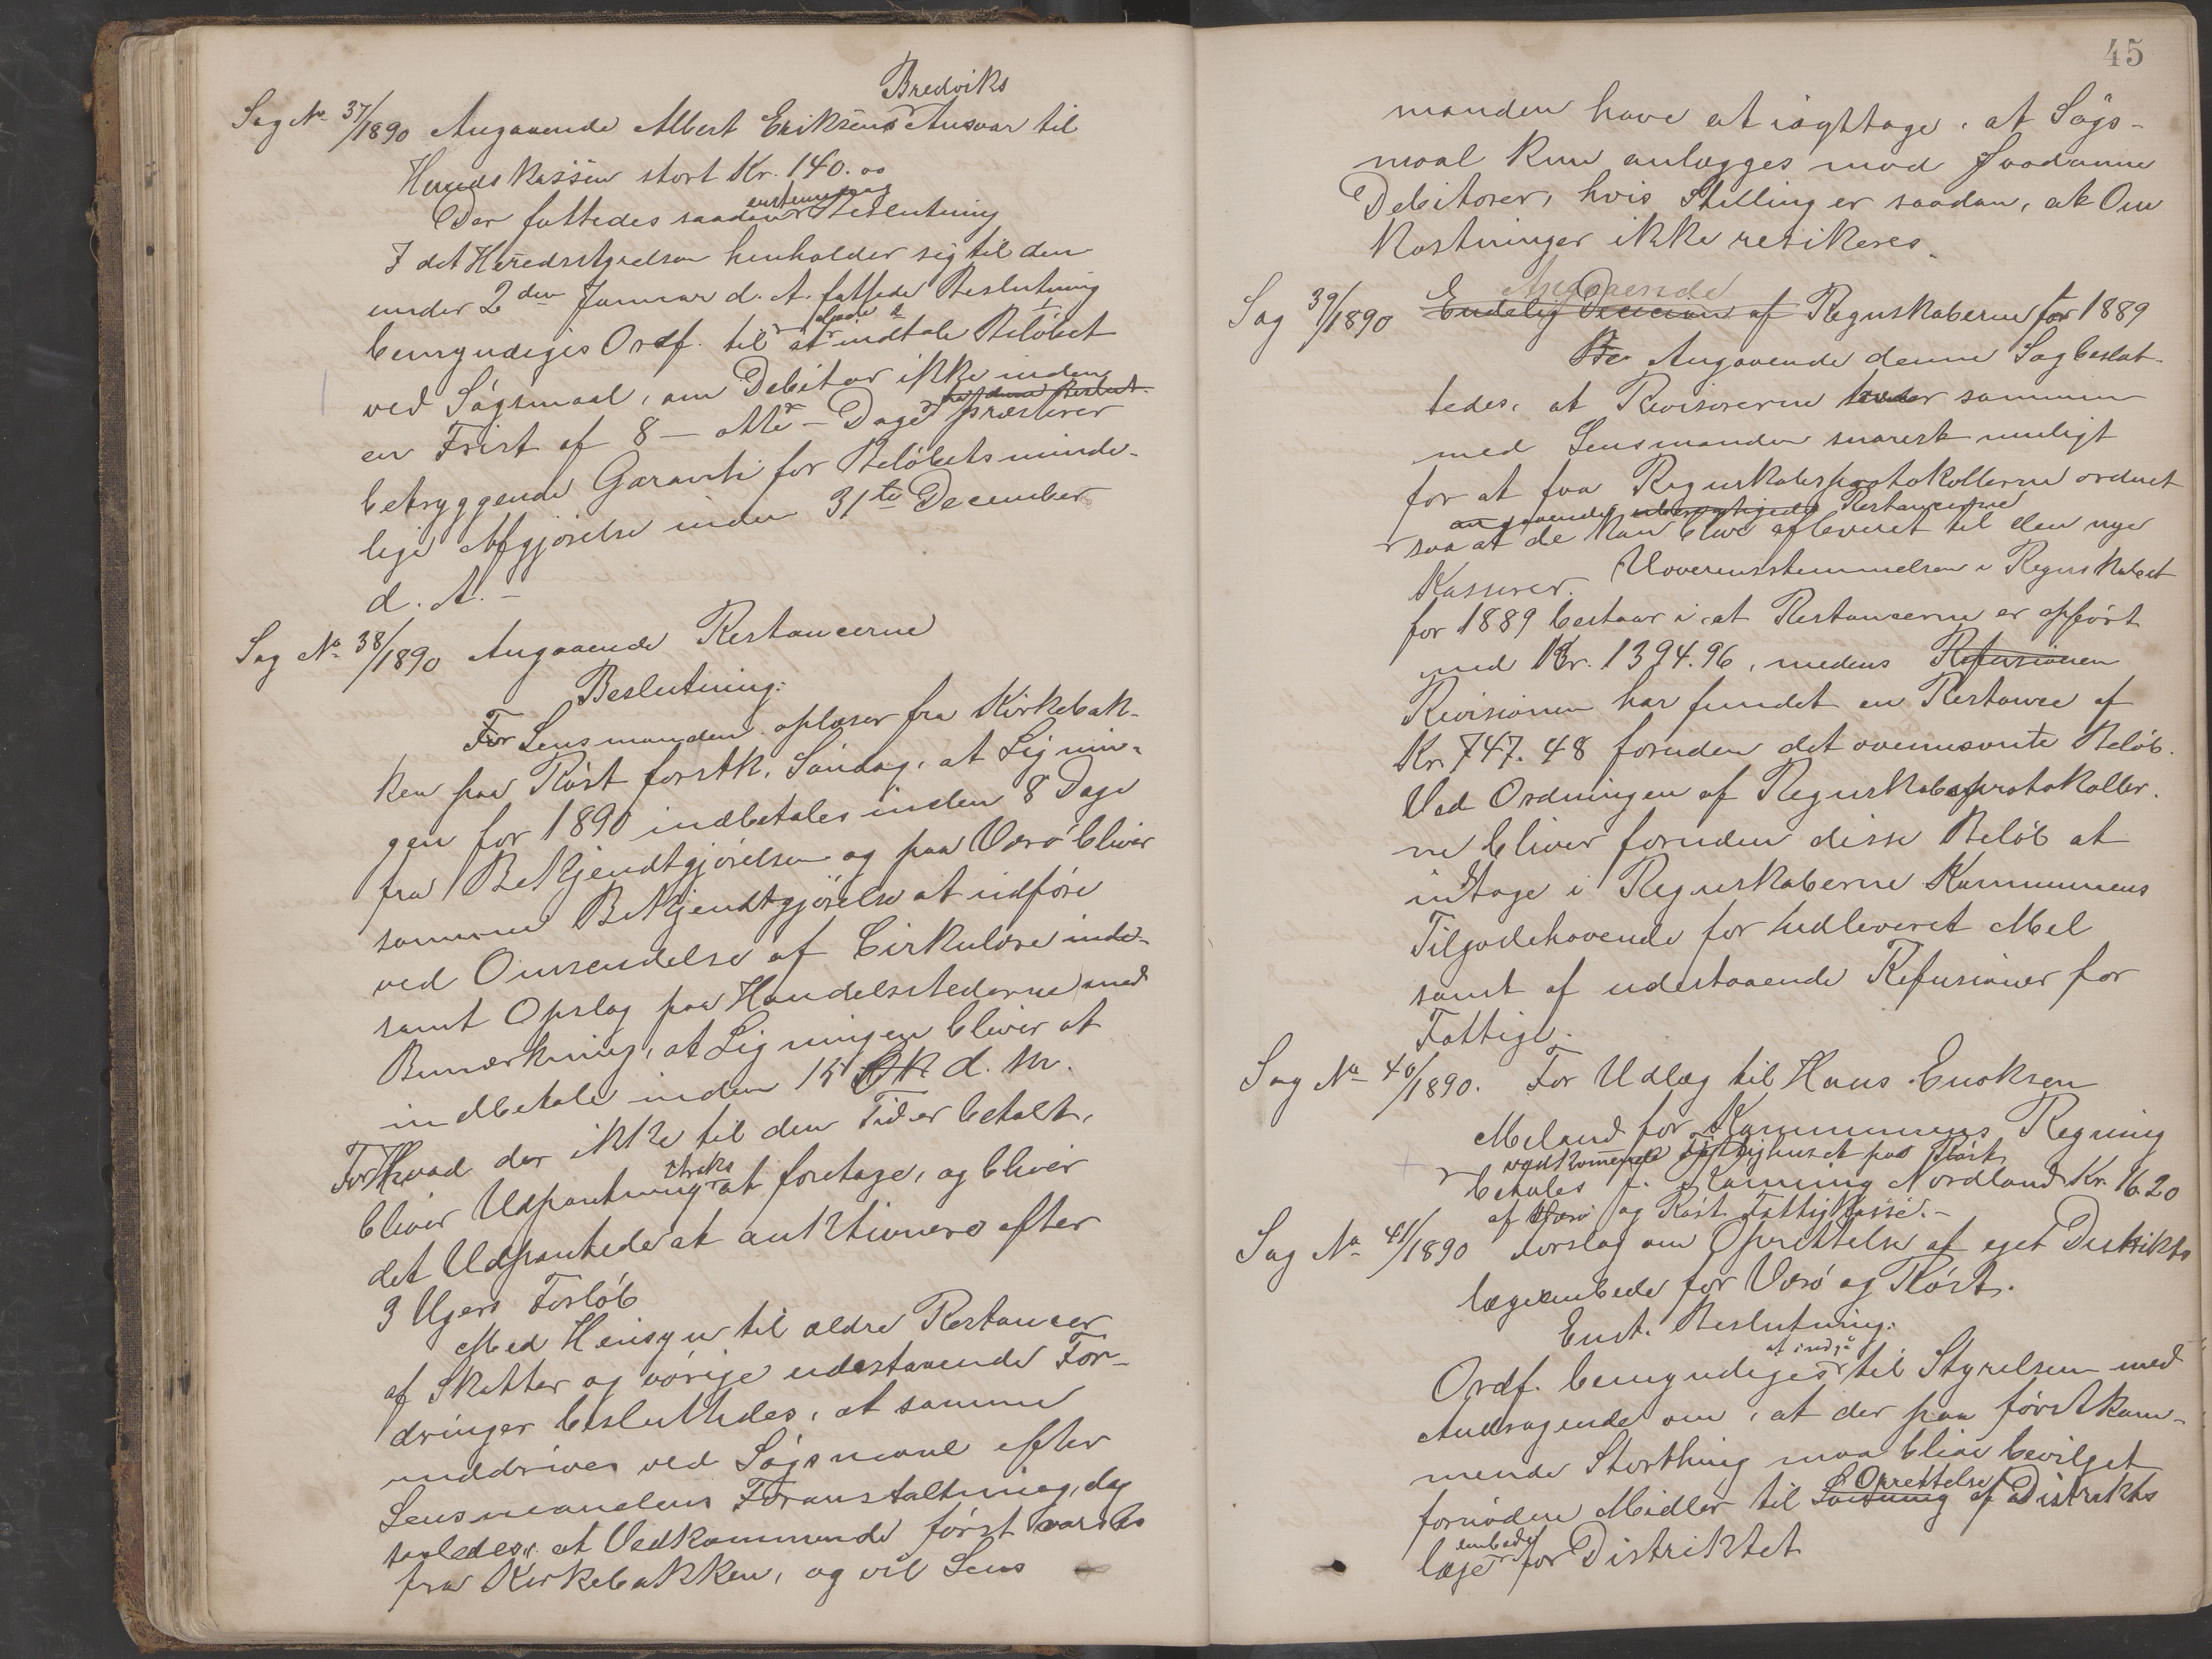 Bredviks
Sag No 37/1890 Angaaende Albert Eriksens Ansvar til
Heredskassen stort Kr. 140.00
enstemmig
Der fattedes saadan Beslutning
I det Heredsstyrelsen henholder sig til den
under 2den Januar d. A. fattede Beslutning
bemyndiges Ordf. til at indtale Beløbet
ved Søgsmaal, om Debitor ikke inden
en Frist af 8 – otte – Dage præsterer
betryggende Garanti for Beløbets minde-
lige Afgjørelse inden 31te December
d. A. –
Sag No 38/1890 Angaaende Restancerne
Beslutning:
For Lensmanden oplæser fra Kirkebak-
ken paa Røst førstk. Søndag, at Lignin-
gen for 1890 indbetales inden 8 Dage
fra Bekjendtgjørelsen og paa Værø bliver
samme Bekjendtgjørelse at udføre
ved Omsendelse af Cirkulære
samt Opslag paa Handelsstederne med
Bemærkning, at Ligningen bliver at
indbetale inden 15 d. M.
For Hvad der ikke til den Tid er betalt,
straks
bliver Udpantning at foretage, og bliver
det Udpantede at auktionere efter
3 Ugers Forløb
Med Hensyn til ældre Restancer
af Skatter og øvrige udestaaende For-
dringer besluttedes, at samme
inddrives ved Søgsmaal efter
Lensmandens Foranstaltning, dog
saaledes, at Vedkommende først varsles
fra Kirkebakken, og vil Lens
45
manden have at iagttage, at Søgs-
maal kun anlægges mod saadanne
Debitorer, hvis Stilling er saadan, at Om
kostninger ikke resikeres.
Angaaende
Sag 39/1890 Endelig Decision af Regnskaberne for 1889
Angaaende denne Sag beslut-
tedes, at Revisorerne træder sammen
med Lensmanden snarest muligt
for at faa Regnskabsprotokollerne ordnet
angaaende Restancerne
saa at de kan blive afleveret til den nye
Kasserer. Uoverensstemmelsen i Regnskabet
for 1889 bestaar i, at Restancerne er opført
med Kr. 1394.96, medens Refusionen
Revisionen har fundet en Restance af
Kr. 747.48 foruden det ovennævnte Beløb.
Ved Ordningen af Regnskabsprotokoller-
ne bliver foruden disse Beløb at
indtage i Regnskaberne Kommunens
Tilgodehavende for udleveret Mel
samt af udestaaende Refusioner for
Fattige.
Sag No 40/1890. For Udlæg til Hans Enoksen
Meland for Kommunens Regning
vedkommende Fattighuset paa Røst
betales J. Kanning Nordland Kr. 16.20
af Værø og Røst Fattigkasse. –
Sag No 41/1890 Forslag om Oprettelse af eget Distrikts
lægeembede for Værø og Røst.
Enst. Beslutning:
at indgå
Ordf. bemyndiges til Styrelsen med
Andragende om, at der paa førstkom-
mende Storthing maa blive bevilget
Oprettelse
fornødne Midler til Lønning af Distrikts
embede
læge for Distriktet